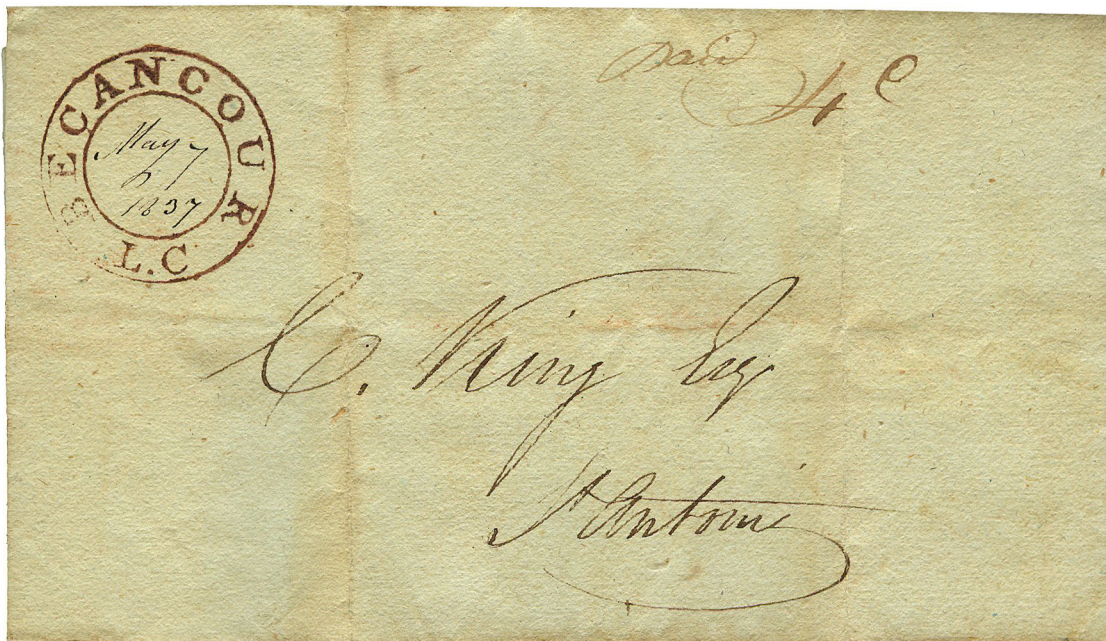 BECANCOUR
May 7
1837
L.C
paid
C. King Esq
St Antoine